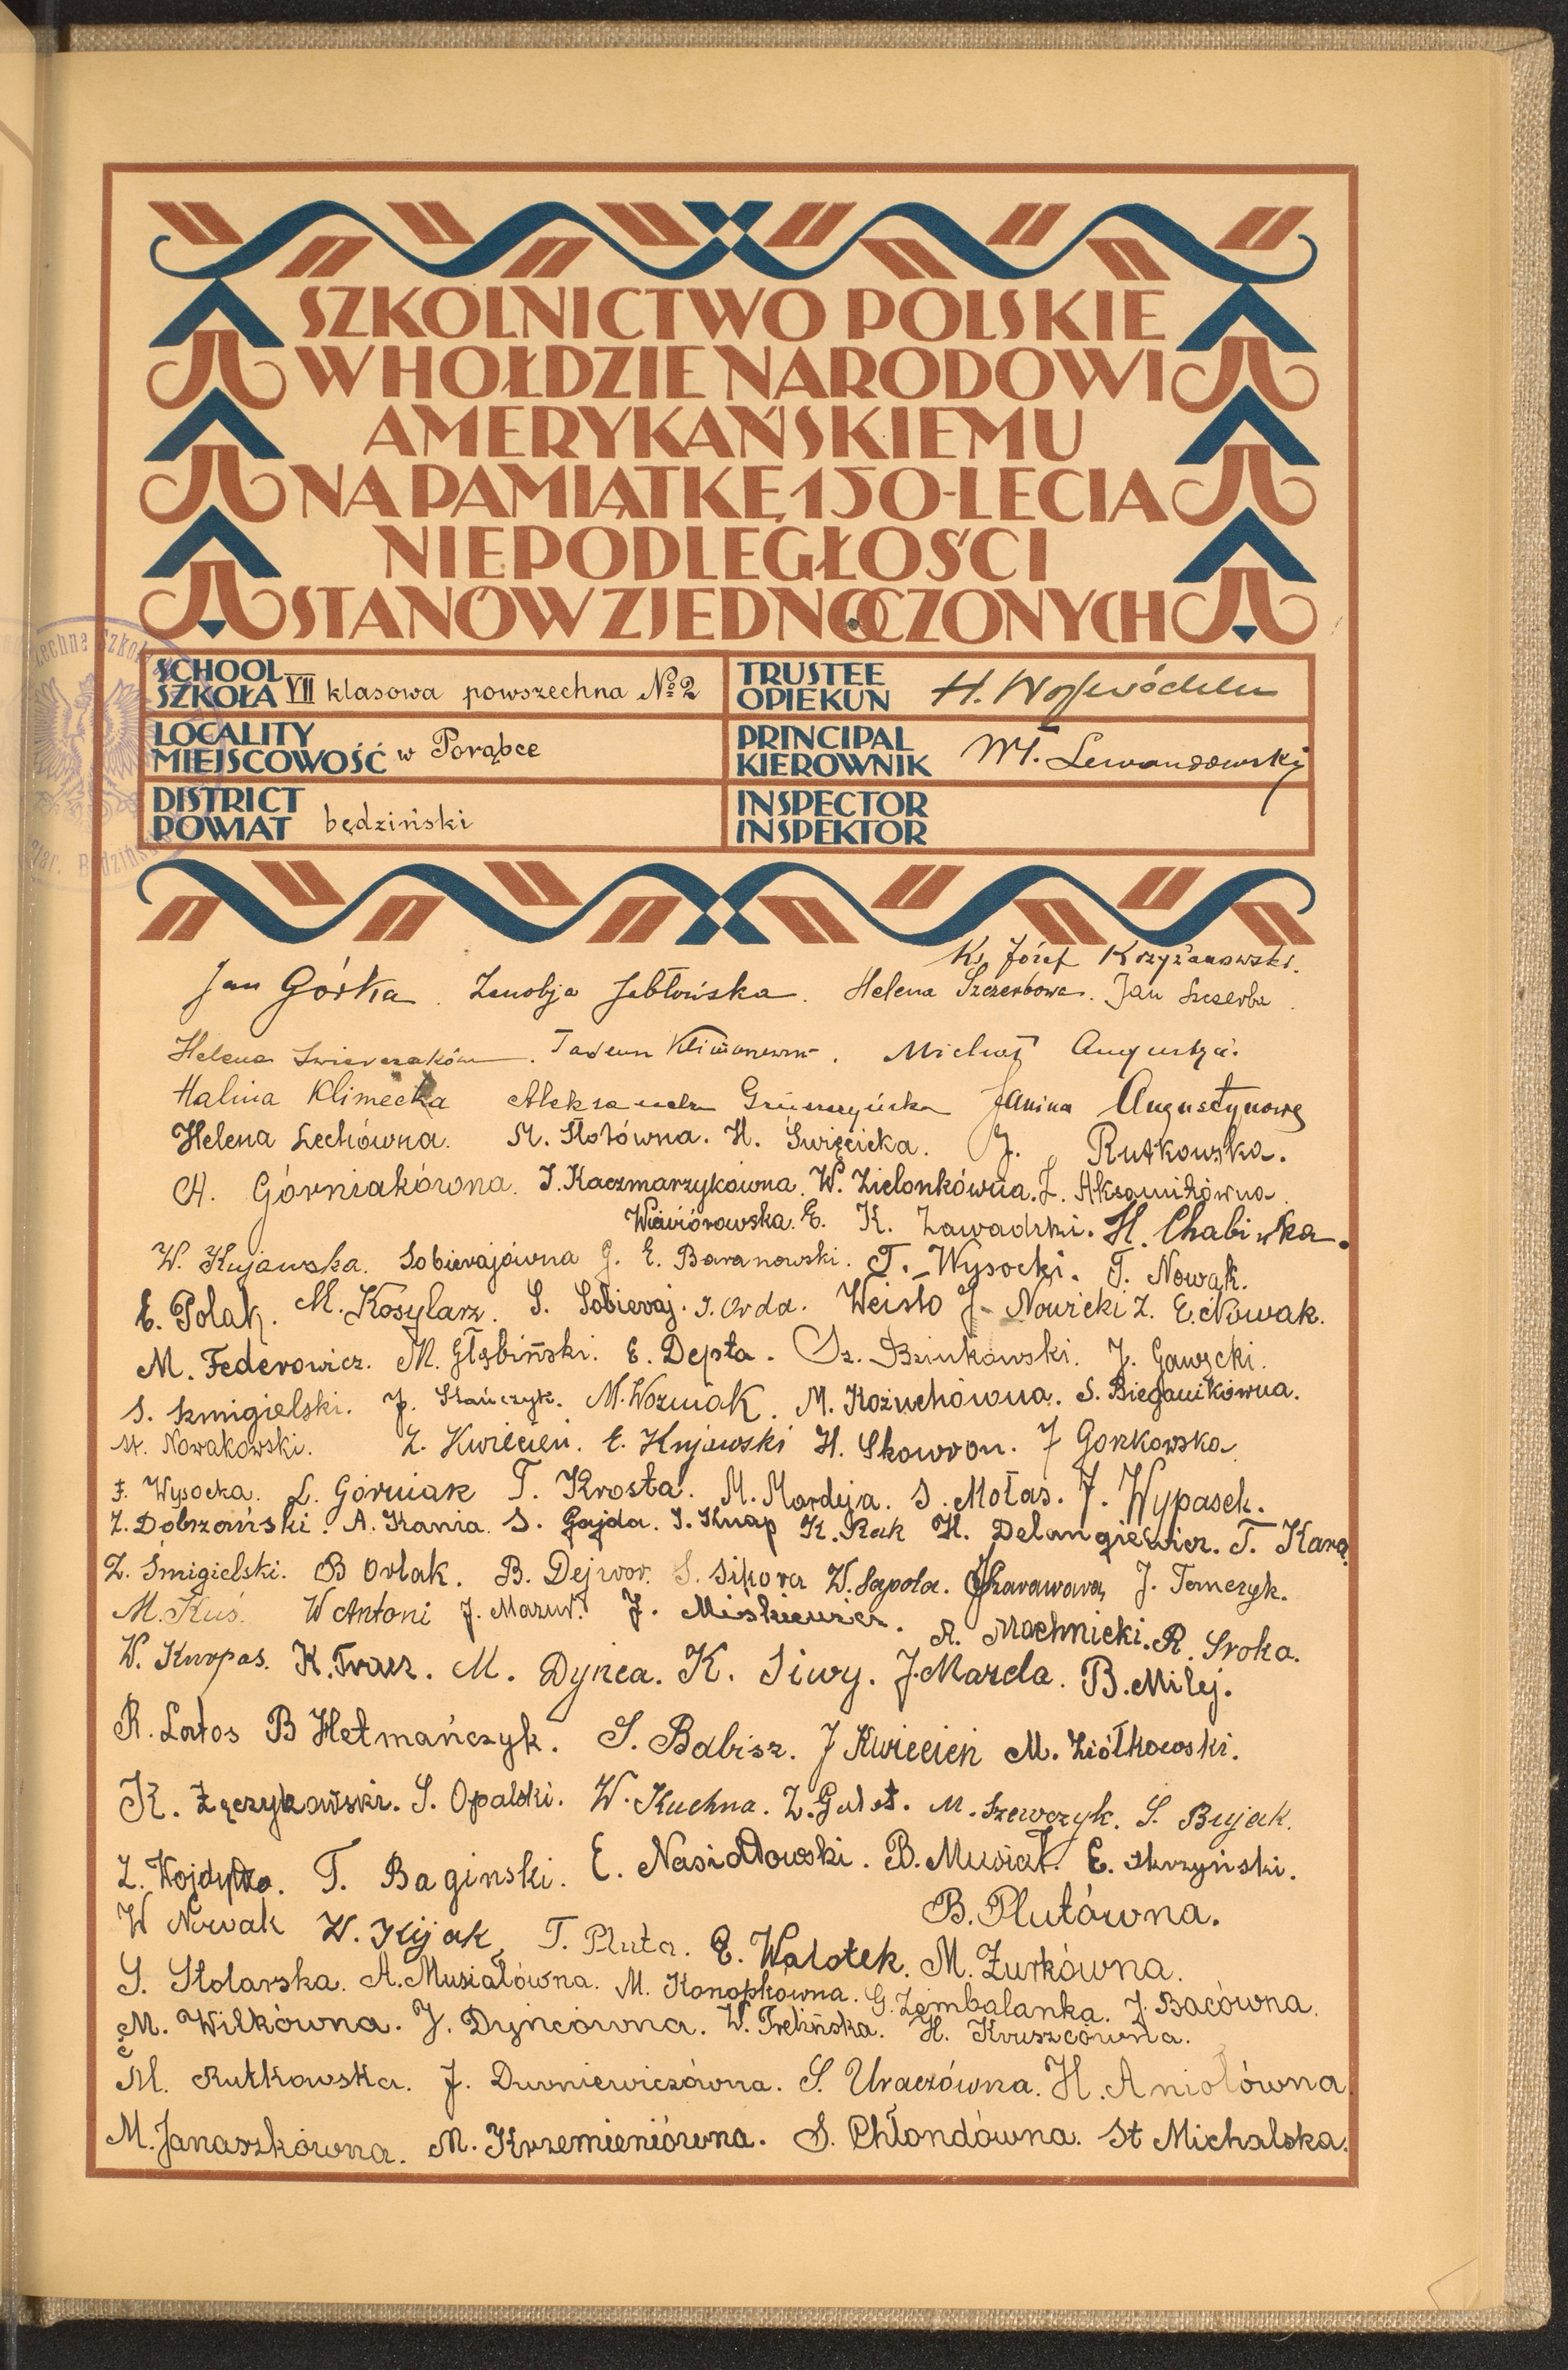 SZKOLNICTWO POLSKIE
W HOŁDZIE NARODOWI
AMERYKAŃSKIEMU
NA PAMIĄTKĘ 150-LECIA
NIEPODLEGŁOŚCI
STANÓW ZJEDNOCZONYCH
SCHOOL
SZKOŁA VII klasowa powszechna № 2
TRUSTEE
OPIEKUN H.
LOCALITY
MIEJSCOWOŚĆ w Porąbce
PRINCIPAL
KIEROWNIK Wł. Lewandowski
DISTRICT
POWIAT będziński
INSPECTOR
INSPEKTOR
Ks. Józef Krzyżanowski.
Jan Górka. Zenobja Jabłońska. Helena Szczerbowa. Jan Szczerba.
Helena Michał Augustyn.
Halina Klimecka Aleksandra Gruszczyńska Janina Augustynowa
Helena Lechówna. M. Słotówna. H. Święcicka. J. Rutkowska.
H. Górniakówna. J. Kaczmarzykówna. W. Zielonkówna. J. Aksamitówna.
Wiewiórowska. E. K. Zawadzki. H. Chabinka.
W. Kujawska. Sobierajówna J. E. Baranowski. T. Wysocki. T. Nowak.
E. Polak. M. Kosylarz. S. Sobieraj. J. Orda. Weisło J. Nowicki Z. E. Nowak.
M. Federowicz. M. Głębiński. E. Depta. Sz. Bzinkowski. J. Gawęcki.
S. Szmigielski. J. Stańczyk. M. Woźniak. M. Kożuchówna. S. Bieganikówna.
St. Nowakowski. Z. Kwiecień. E. Kujawski H. Skowron. J Gorkowska.
F. Wysocka. L. Górniak T. Krosta. M. Mordyja. S. Mołas. J. Wypasek.
Z. Dobrzański. A. Kania. S. Gajda. J. Knap K. Rak H. Delangiewicz. T. Kara
Z. Śmigielski. B Orlak. B. Dejwor. S. Sikora W. Sapota. J. Tomczyk.
M. Kuś. W Antoni J. Mazur. J. Miśkiewicz. A. Machnicki. R. Sroka.
W. Knopas. K. Tracz. M. Dyńca. K. Siwy. J. Mazela. B. Milej.
R. Latos B Hetmańczyk. S. Babisz. J Kwiecień M. Ziółkowski.
K. Łęczykowski. S. Opalski. W. Kuchna. Z. Gałot. M. Szewczyk. S. Bujak.
Z. Wojdyłko. T. Baginski. E. Nasiadłowski. B. Musiał. E. Skrzyński.
B. Plutówna.
W Nowak W. Kijak, T. Pluta. E. Walotek. M. Żurkówna.
S. Stolarska. A. Musiałówna. M. Konopkówna. G. Zembalanka. J. Bacówna.
M. Wilkówna. J. Dyńcówna. W. Trelińska. H. Kruszcówna.
M. Rutkowska. J. Durniewiczówna. S. Uraczówna. H. Aniołówna
M. Janaszkówna. M. Krzemieniówna. S. Chłondówna. St Michalska.